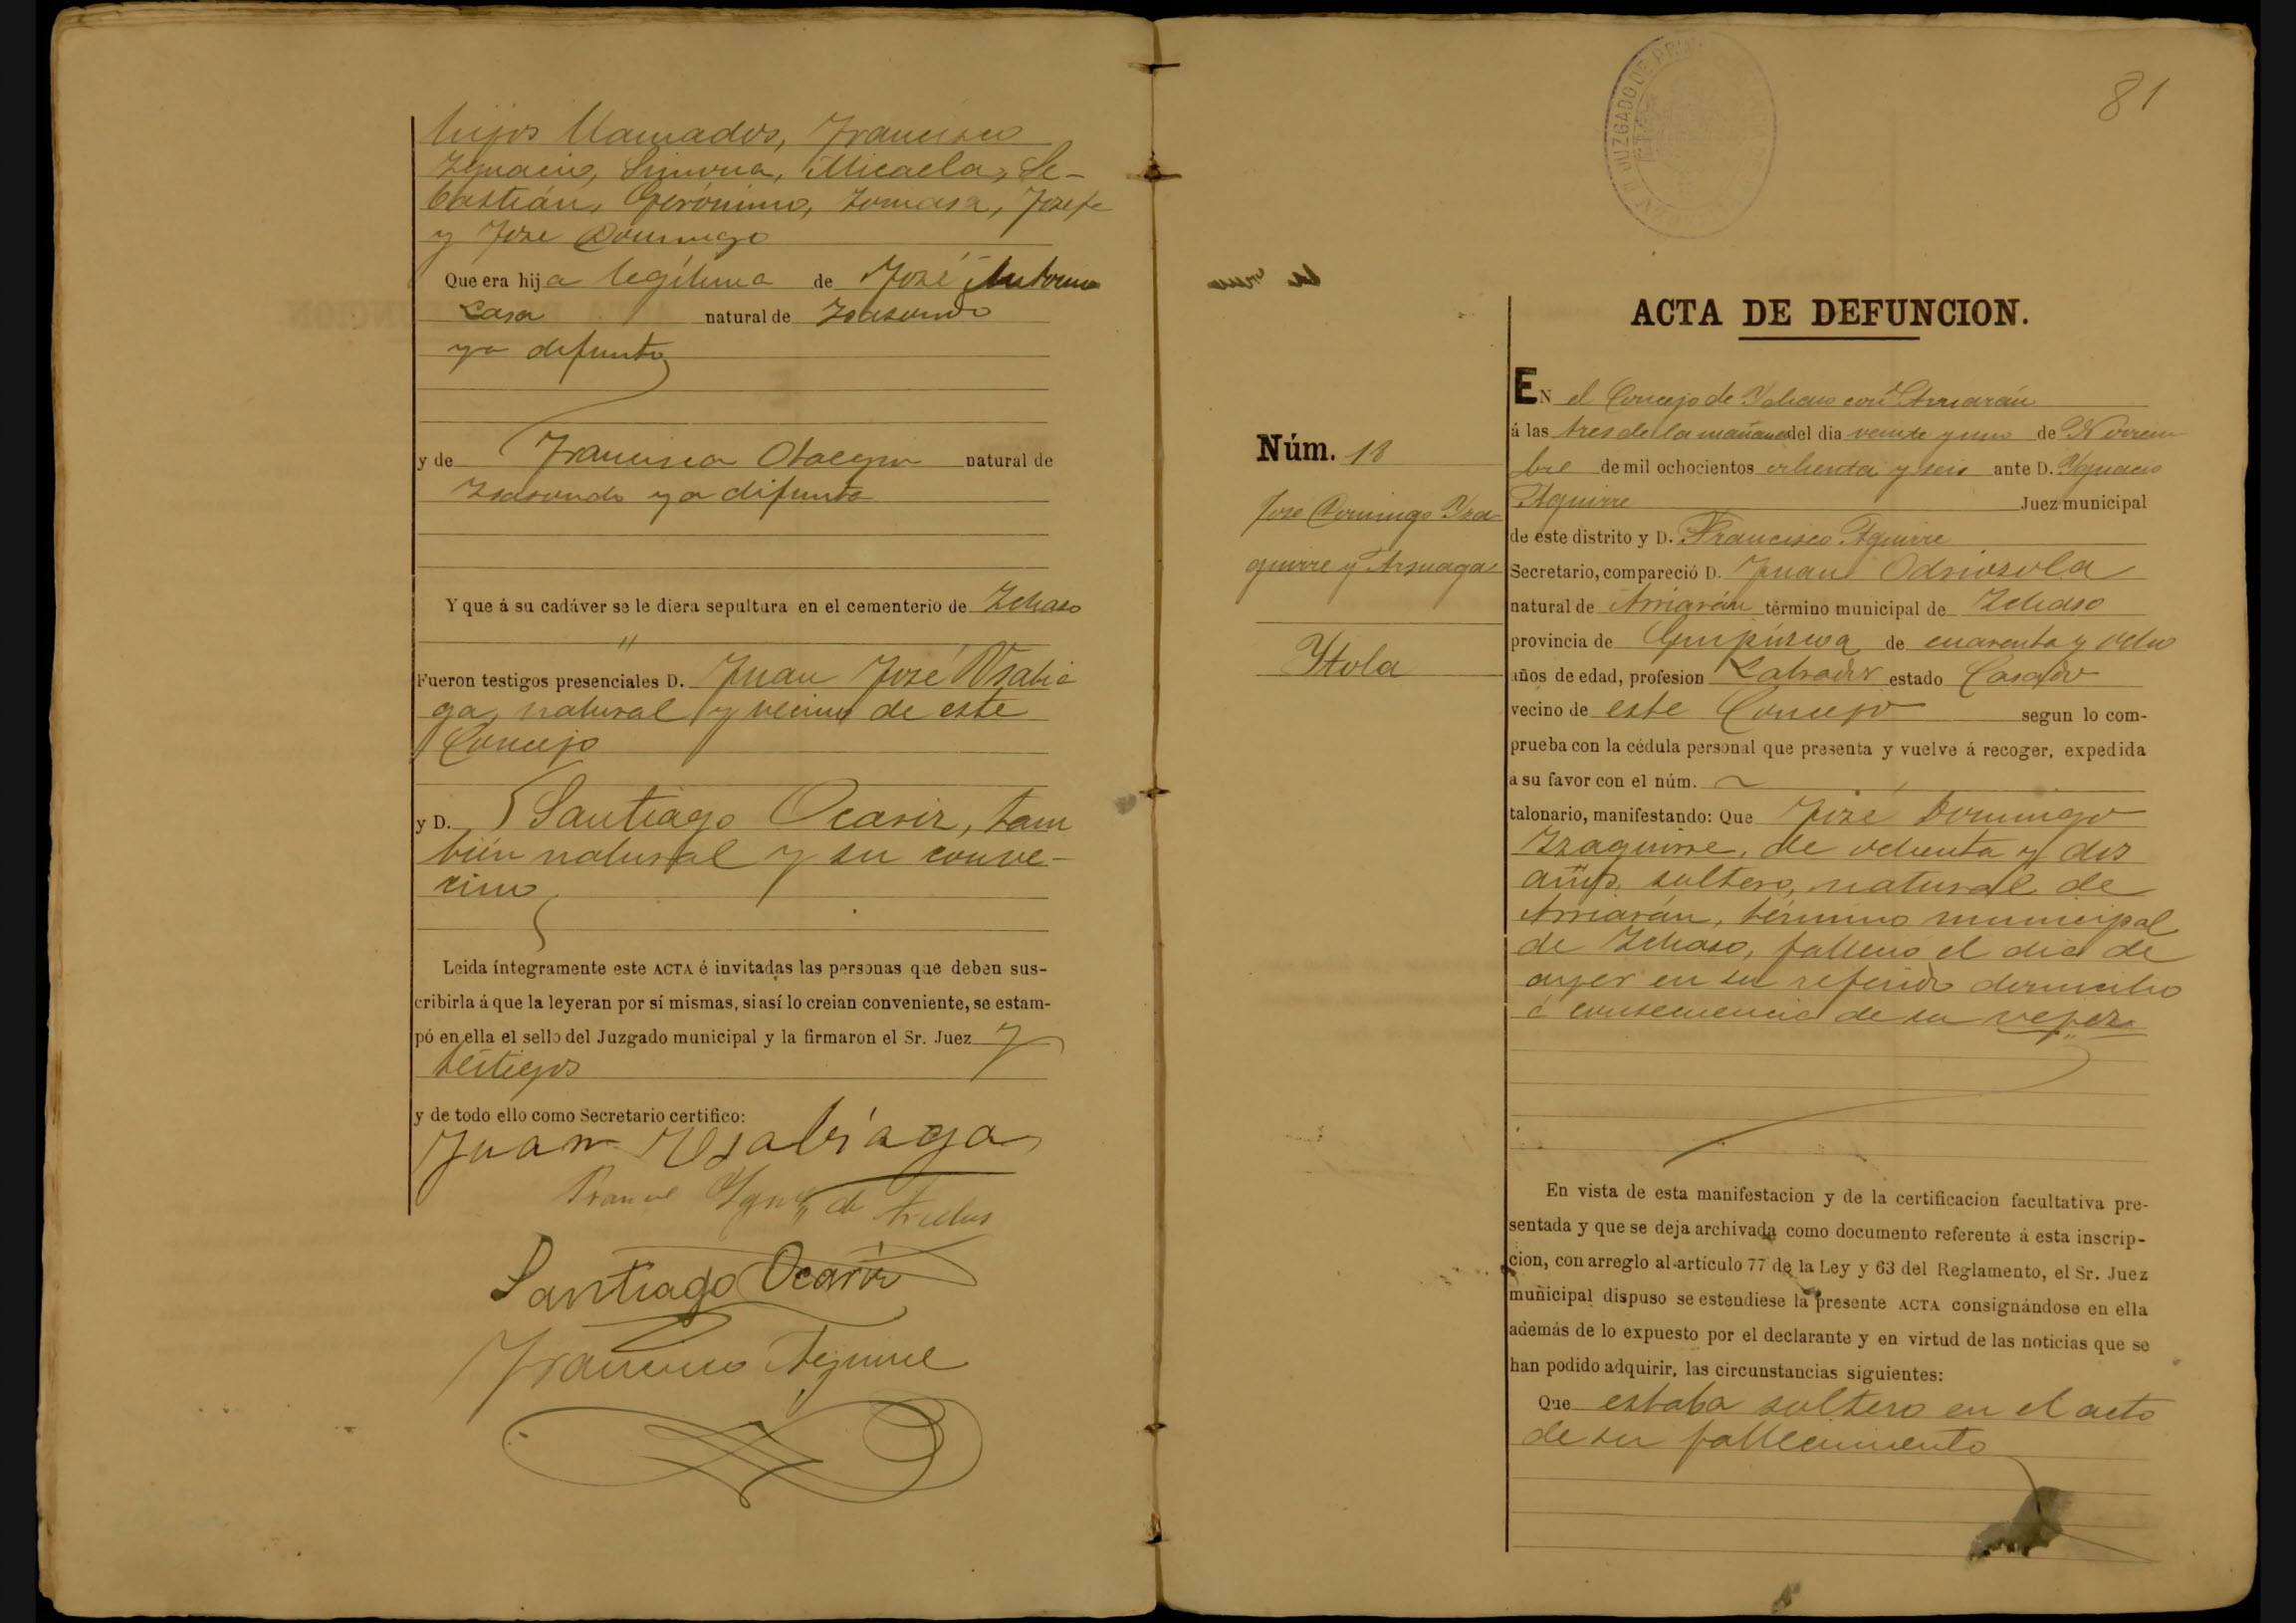 hijos llamados, Francisco
Ygnacio, Simona, Micaela, Se-
bastián, Gerónimo, Tomasa, Josefa
y José Domingo
Que era hija legítima de José Antonio
Lasa natural de Isasondo
ya difunto
y de Francisca Otaegui natural de
Isasondo ya difunta
Y que á su cadáver se le diera sepultura en el cementerio de Ichaso
"
Fueron testigos presenciales D. Juan José Usabia
ga, natural y vecino de este
Concejo
y D. Santiago Ocariz, tam
bién natural y su conve-
cino
Leida íntegramente este ACTA é invitadas las personas que deben sus-
cribirla á que la leyeran por sí mismas, si así lo creian conveniente, se estam-
pó en ella el sello del Juzgado municipal y la firmaron el Sr. Juez y
testigos
y de todo ello como Secretario certifico:
Juan Usabiaga
de
Santiago Ocariz
Francisco Aguirre
81
JUZGADO DE
ACTA DE DEFUNCION.
Núm. 18
Jose Domingo Yza-
guirre y Arsuaga
Ytola
EN el Concejo de Ychaso con Arriarán
á las tres de la mañana del dia veinte y uno de Noviem
bre de mil ochocientos ochenta y seis ante D. Ygnacio
Aguirre Juez municipal
de este distrito y D. Francisco Aguirre
Secretario, compareció D. Juan Odriozola
natural de Arriarán término municipal de Ichaso
provincia de Guipúzcoa de cuarenta y ocho
años de edad, profesion Labrador estado Casado
vecino de este Concejo segun lo com-
prueba con la cédula personal que presenta y vuelve á recoger, expedida
a su favor con el núm.
talonario, manifestando: Que José Domingo
Izaguirre, de ochenta y dos
años, soltero, natural de
Arriarán, término municipal
de Ichaso, falleció el dia de
ayer en su referido domicilio
á consecuencia de su vejez
En vista de esta manifestacion y de la certificacion facultativa pre-
sentada y que se deja archivada como documento referente á esta inscrip-
cion, con arreglo al artículo 77 de la Ley y 63 del Reglamento, el Sr. Juez
municipal dispuso se estendiese la presente ACTA consignándose en ella
además de lo expuesto por el declarante y en virtud de las noticias que se
han podido adquirir, las circunstancias siguientes:
Que estaba soltero en el acto
de su fallecimiento